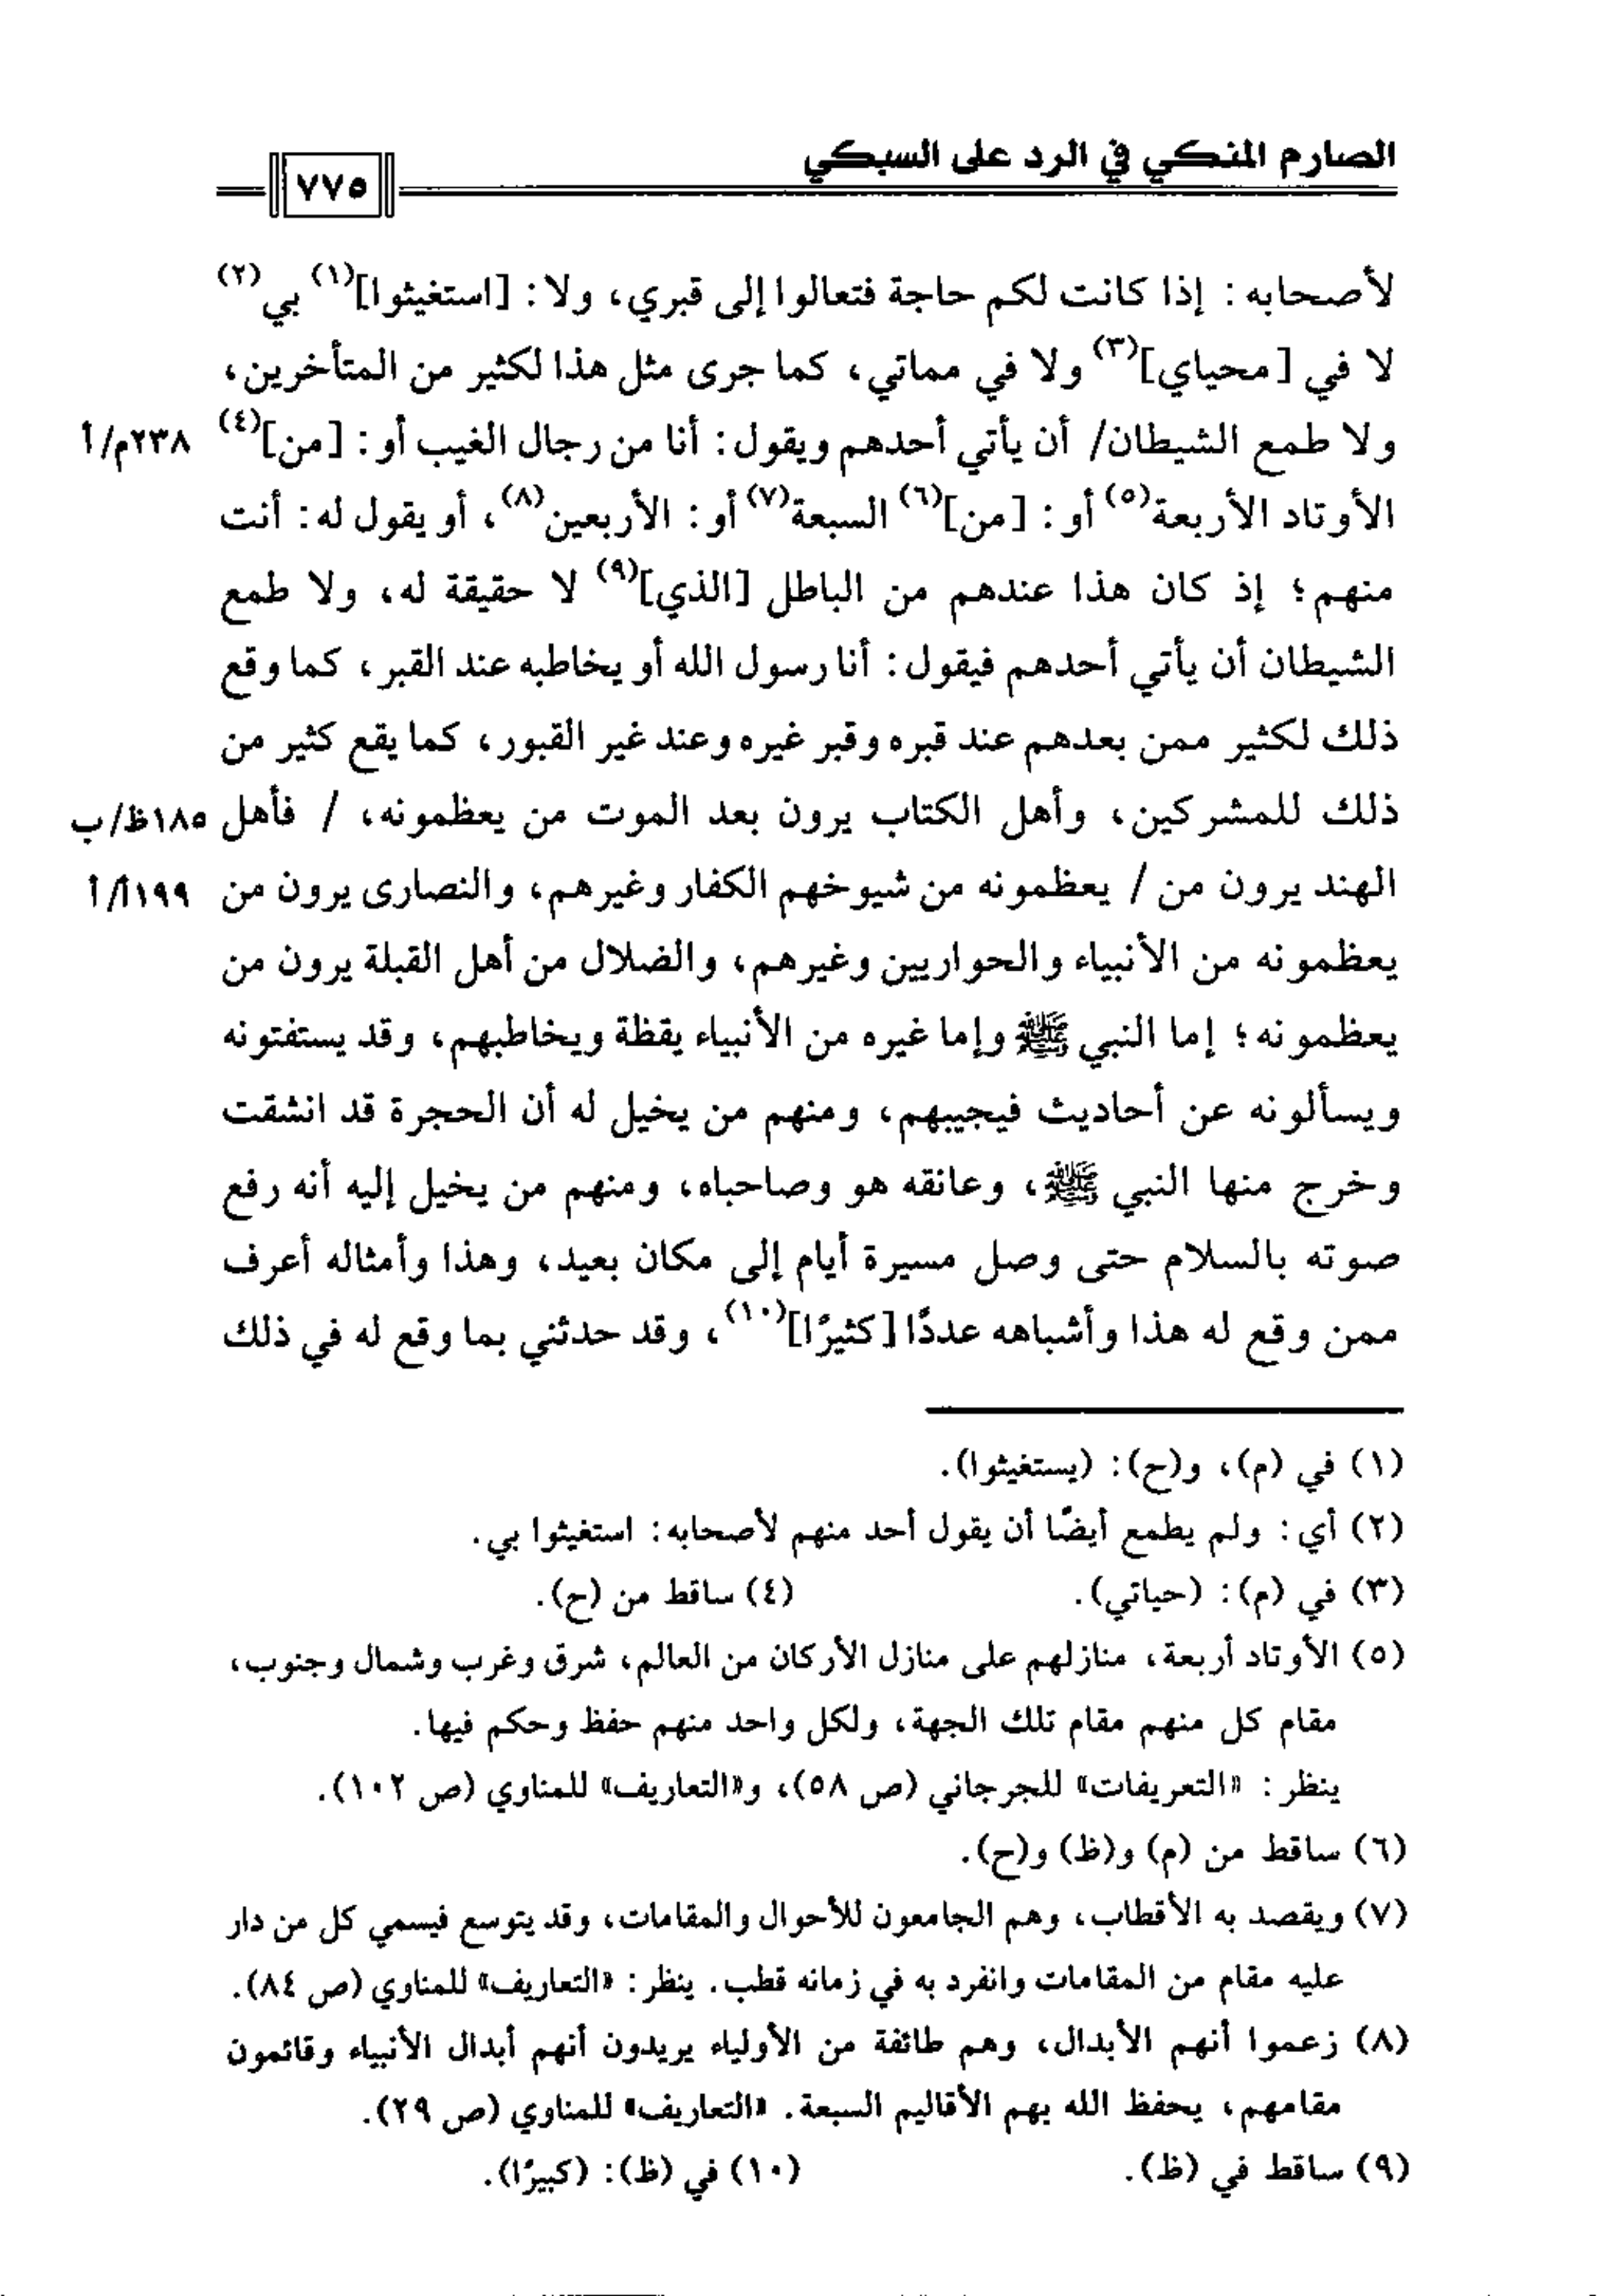 الصارم المنكي في الرد على السبكي
٧٧٥
لأصحابه: إذا كانت لكم حاجة فتعالوا إلى قبري، ولا: [استغيثوا](١) بي(٢)
لا في [محياي](٣) ولا في مماتي، كما جرى مثل هذا لكثير من المتأخرين،
ولا طمع الشيطان/ أن يأتي أحدهم ويقول: أنا من رجال الغيب أو: [من](٤) ٢٣٨م/أ
الأوتاد الأربعة(٥) أو: [من](٦) السبعة(٧) أو: الأربعين(٨)، أو يقول له: أنت
منهم؛ إذ كان هذا عندهم من الباطل [الذي](٩) لا حقيقة له، ولا طمع
الشيطان أن يأتي أحدهم فيقول: أنا رسول الله أو يخاطبه عند القبر، كما وقع
ذلك لكثير ممن بعدهم عند قبره وقبر غيره وعند غير القبور، كما يقع كثير من
ذلك للمشركين، وأهل الكتاب يرون بعد الموت من يعظمونه، / فأهل ١٨٥ظ/ب
الهند يرون من / يعظمونه من شيوخهم الكفار وغيرهم، والنصارى يرون من ١٩٩أ/أ
يعظمونه من الأنبياء والحواريين وغيرهم، والضلال من أهل القبلة يرون من
يعظمونه؛ إما النبي ﷺ وإما غيره من الأنبياء يقظة ويخاطبهم، وقد يستفتونه
ويسألونه عن أحاديث فيجيبهم، ومنهم من يخيل له أن الحجرة قد انشقت
وخرج منها النبي ﷺ، وعانقه هو وصاحباه، ومنهم من يخيل إليه أنه رفع
صوته بالسلام حتى وصل مسيرة أيام إلى مكان بعيد، وهذا وأمثاله أعرف
ممن وقع له هذا وأشباهه عددًا [كثيرًا](١٠)، وقد حدثني بما وقع له في ذلك
(١) في (م)، و(ح): (يستغيثوا).
(٢) أي: ولم يطمع أيضًا أن يقول أحد منهم لأصحابه: استغيثوا بي.
(٣) في (م): (حياتي). (٤) ساقط من (ح).
(٥) الأوتاد أربعة، منازلهم على منازل الأركان من العالم، شرق وغرب وشمال وجنوب،
مقام كل منهم مقام تلك الجهة، ولكل واحد منهم حفظ وحكم فيها.
ينظر: «التعريفات» للجرجاني (ص ٥٨)، و«التعاريف» للمناوي (ص ١٠٢).
(٦) ساقط من (م) و(ظ) و(ح).
(٧) ويقصد به الأقطاب، وهم الجامعون للأحوال والمقامات، وقد يتوسع فيسمي كل من دار
عليه مقام من المقامات وانفرد به في زمانه قطب. ينظر: «التعاريف» للمناوي (ص ٨٤).
(٨) زعموا أنهم الأبدال، وهم طائفة من الأولياء يريدون أنهم أبدال الأنبياء وقائمون
مقامهم، يحفظ الله بهم الأقاليم السبعة. «التعاريف» للمناوي (ص ٢٩).
(٩) ساقط في (ظ). (١٠) في (ظ): (كبيرًا).